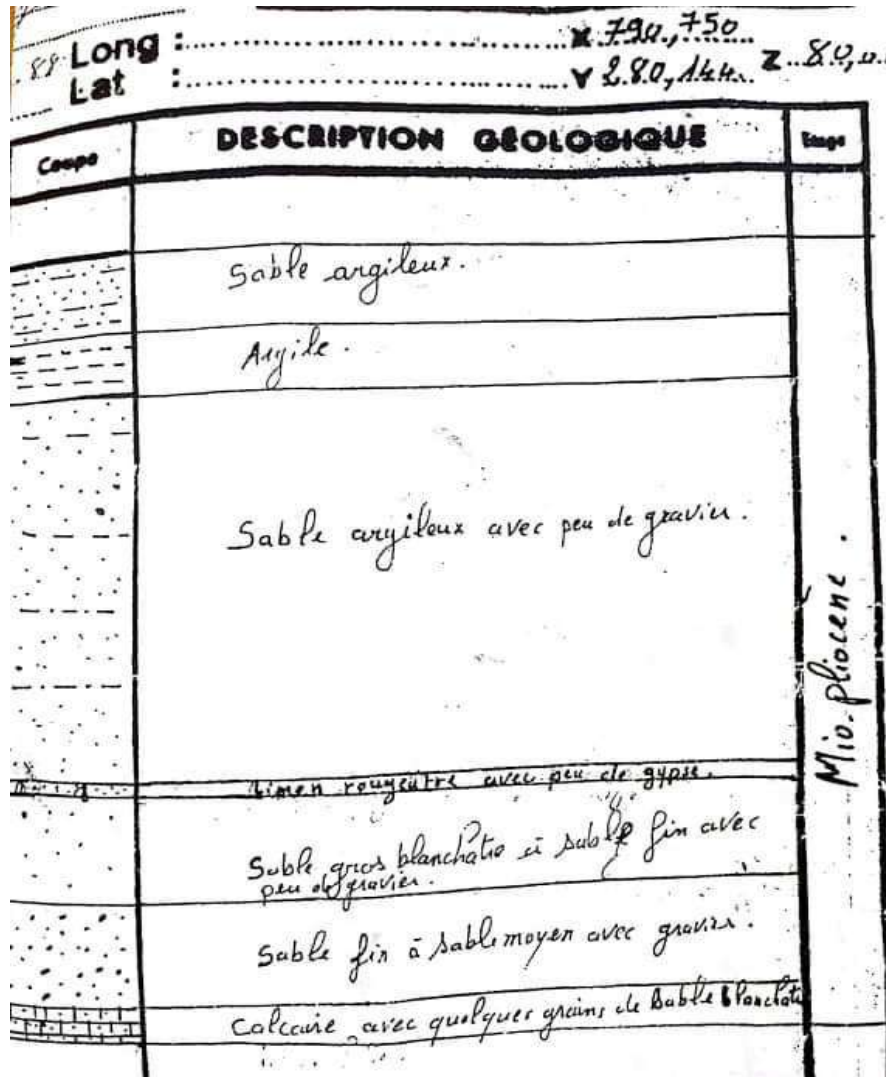 88 Long : X 790,750
Lat : Y 280,144 Z 80,0
Coupe DESCRIPTION GÉOLOGIQUE Etage
Sable argileux.
Argile.
Sable argileux avec peu de gravier.
Mio-pliocène.
Limon rougeatre avec peu de gypse.
Sable gros blanchatre à sable fin avec
peu de gravier.
Sable fin à sable moyen avec gravier.
Calcaire avec quelques grains de sable blanchatre